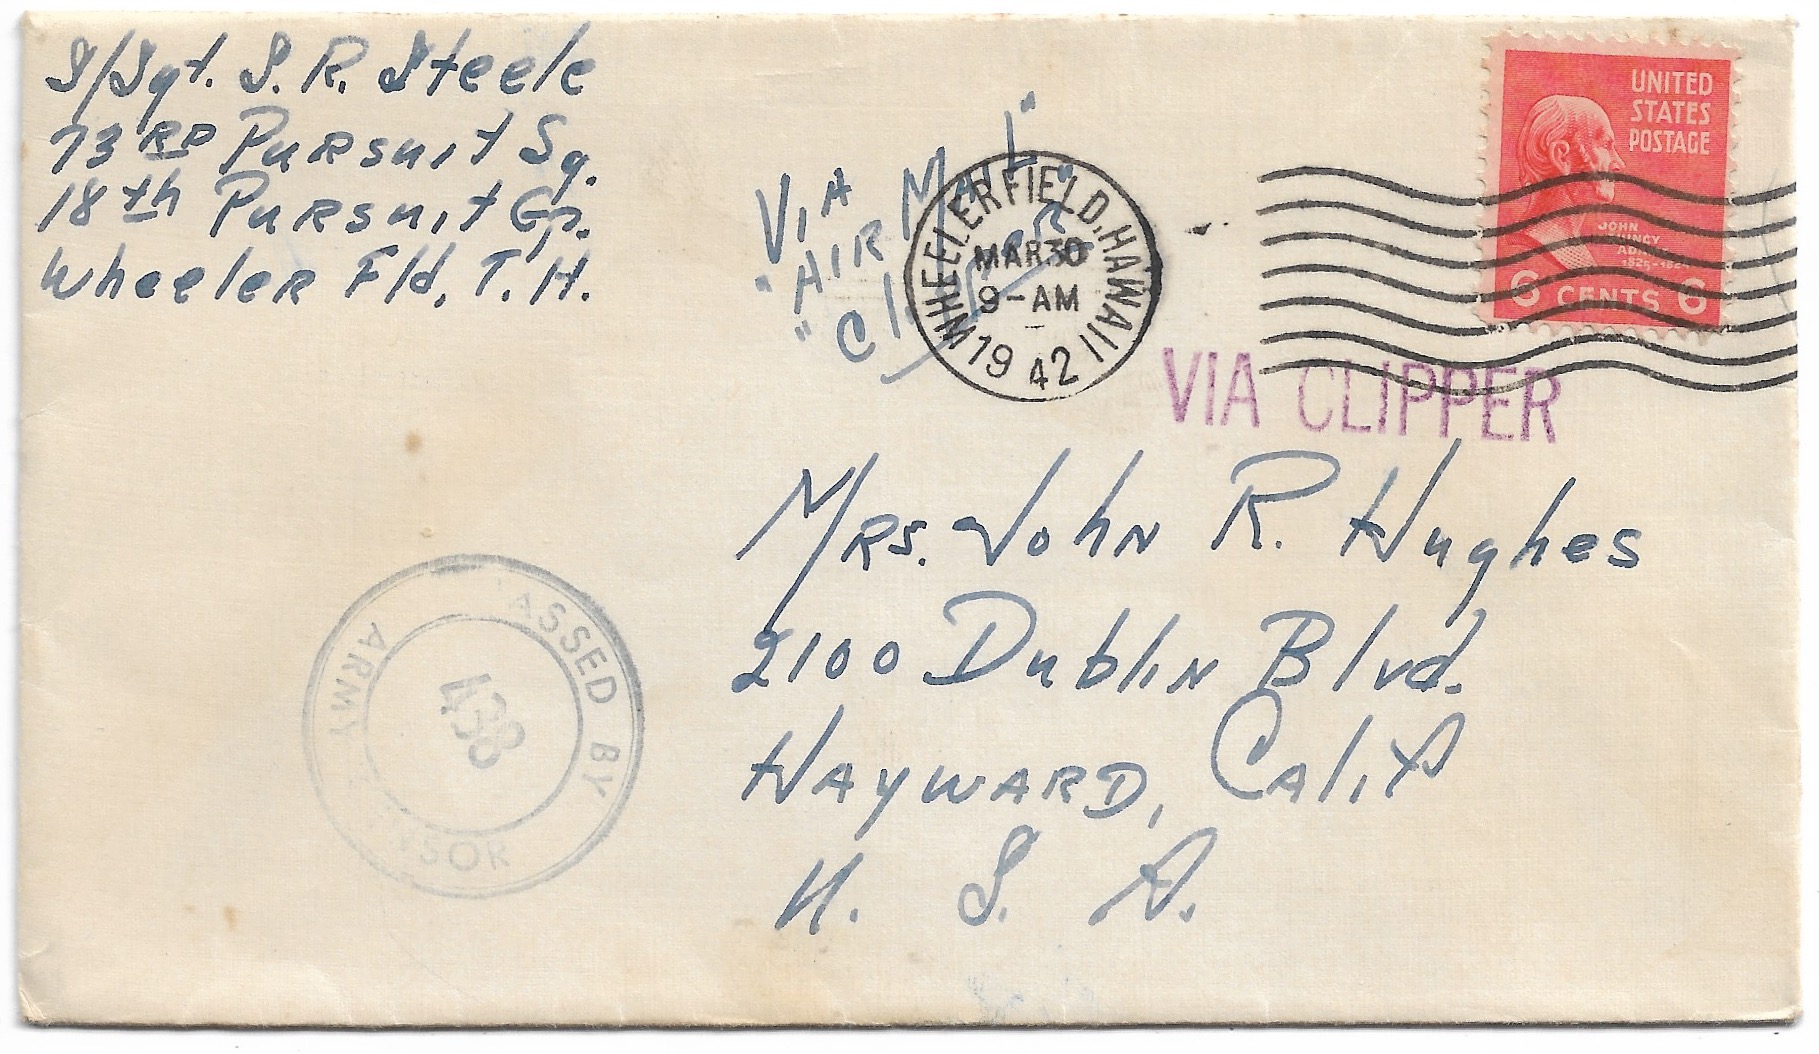 S/Sgt. S. R. Steele
73RD Pursuit Sq.
18th Pursuit Gp.
Wheeler Fld, T.H.
VIA
"AIR MAIL"
"Clipper"
WHEELER FIELD, HAWAII
MAR 30
9-AM
1942
UNITED
STATES
POSTAGE
JOHN
QUINCY
ADAMS
6 CENTS 6
VIA CLIPPER
Mrs. John R. Hughes
2100 Dublin Blvd.
Hayward, Calif
U. S. A.
PASSED BY
ARMY CENSOR